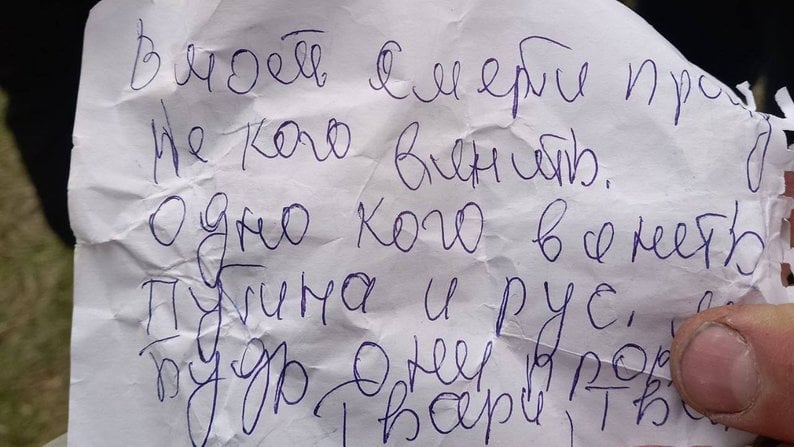 В моей смерти про
не кого винить.
Одно кого венеть
путина и рус.
Будь они про
Твари, тва